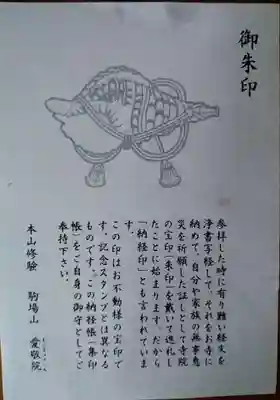 御朱印
参拝した時に有り難い経文を
浄書写経して、それをお寺に
納めて、自分や家族の無事息
災を祈願した証しとして寺院
の宝印（朱印）を戴いて巡礼し
たことに始まります。だから
「納経印」とも言われていま
す。
この印はお不動様の宝印で
す。記念スタンプとは異なる
ものです。この納経帳（集印
帳）をご自身の御守としてご
奉持下さい。
本山修験 駒場山 愛敬院